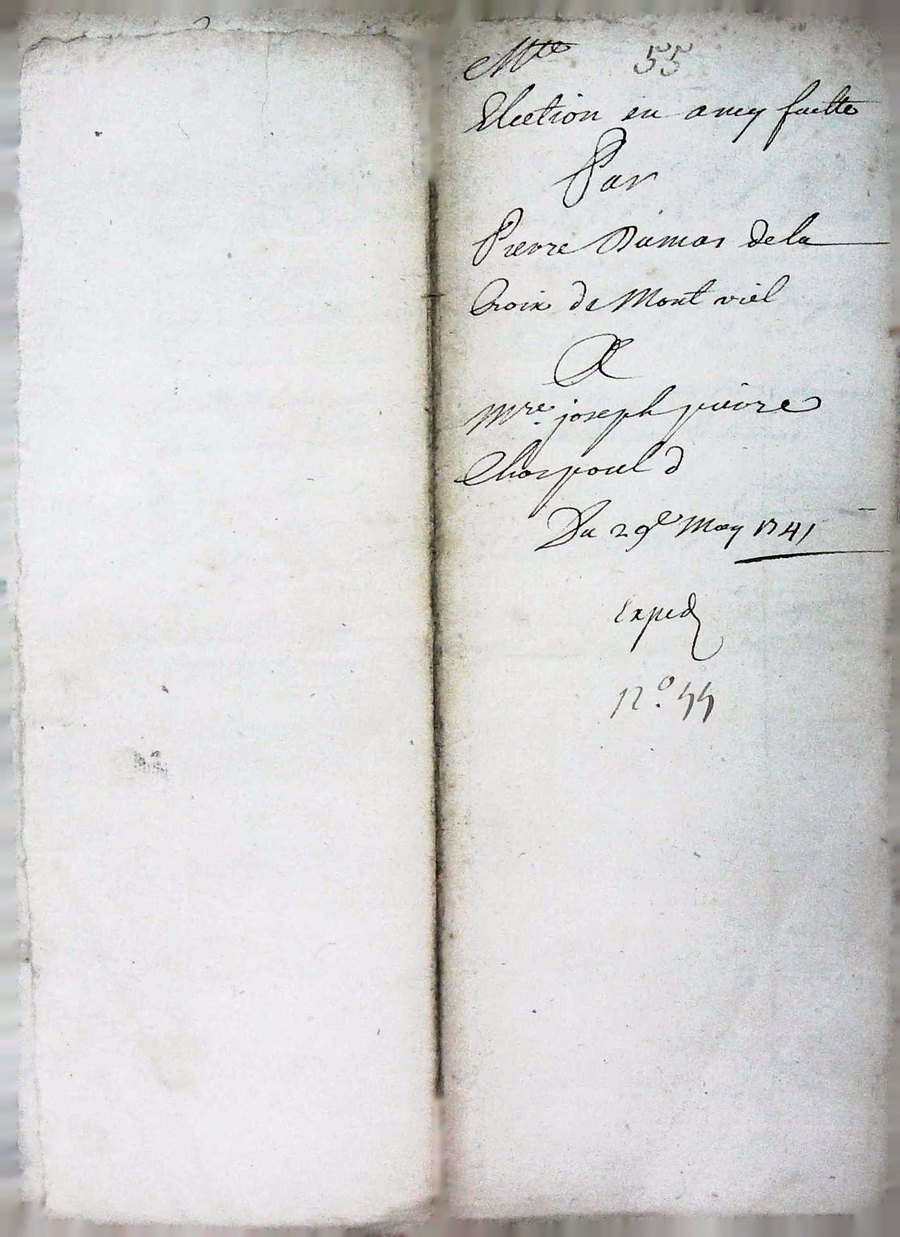 Mte 55
Election en amy faitte
Par
Pierre Dumas dela
Croix de Mont viel
A
Mre. joseph pierre
Du 29e May 1741
Exped
N°. 55